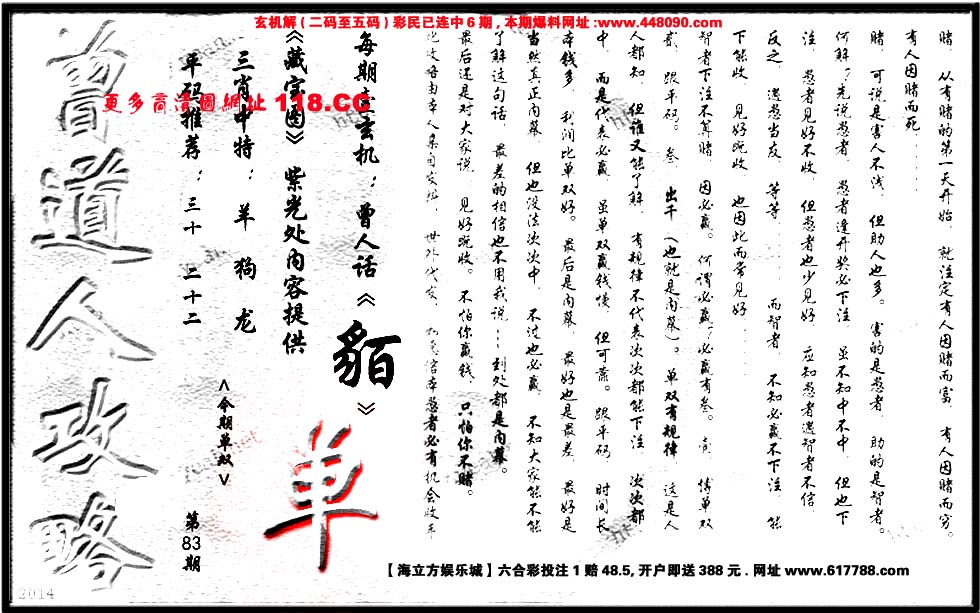 玄机解(二码至五码)彩民已连中6期,本期爆料网址:www.448090.com
赌. 从有赌的第一天开始. 就注定有人因赌而富. 有人因赌而穷.
有人因赌而死......
赌. 可说是害人不浅. 但助人也多. 害的是愚者. 助的是智者.
何解?先说愚者. 愚者逢开奖必下注. 虽不知中不中. 但也下
注. 愚者见好不收. 但愚者也少见好. 应知愚者遇智者不信.
反之. 遇愚当友. 等等...... 而智者. 不知必赢不下注. 能
下能收. 见好就收. 也因此而常见好......
智者下注不算赌. 因必赢. 何谓必赢?必赢有叁. 壹. 情单双
贰. 跟平码。 叁. 出千(也就是内幕)。 单双有规律. 这是人
人都知. 但谁又能了解. 有规律不代表次次都能下注. 次次都
中. 而是代表必赢. 虽单双赢钱慢. 但可靠。 跟平码. 时间长
本钱多. 利润比单双好。 最后是内幕. 最好也是最差. 最好是
当然真正内幕. 但也没法次次中. 不过也必赢. 不知大家能不能
了解这句话. 最差的相信也不用我说...到处都是内幕。
最后还是对大家说. 见好就收。 不怕你赢钱、只怕你不赌。
每期壹玄机:曾人话《貊》
《藏宝图》紫光处内容提供
三肖中特: 羊 狗 龙
平码推荐: 三十 二十二
更多高清图网址 118.CC
<今期单双>
单
第83期
曾道人攻略
2014
【海立方娱乐城】六合彩投注1赔48.5,开户即送388元.网址 www.617788.com